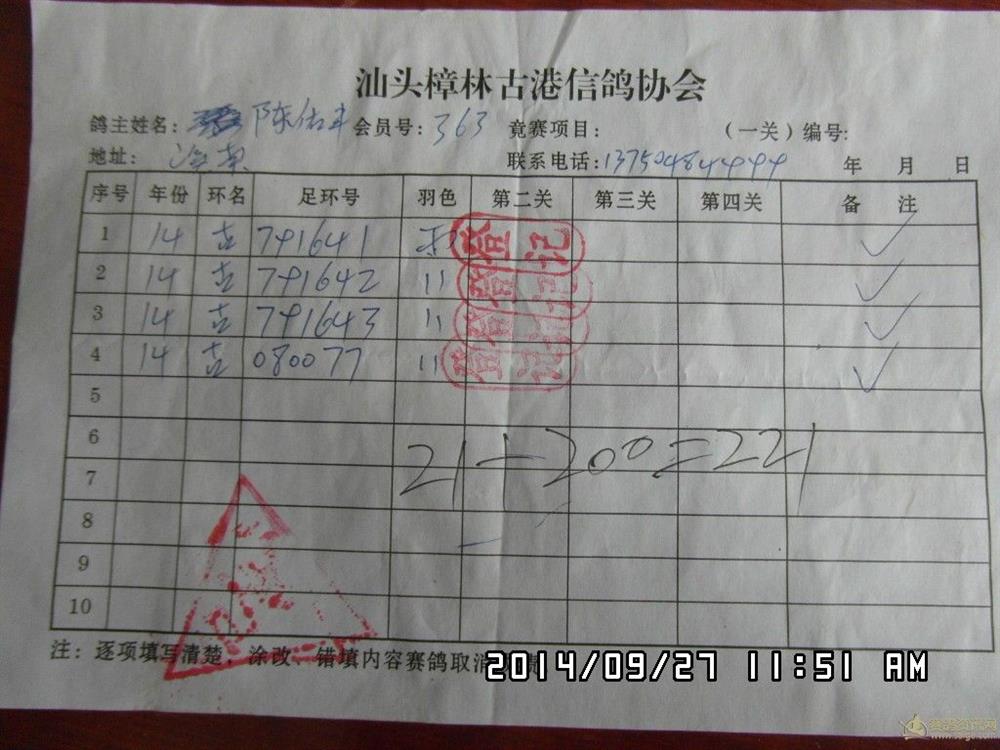 汕头樟林古港信鸽协会
鸽主姓名: 陈 会员号: 363 竟赛项目: （一关）编号:
地址: 联系电话: 13750484444 年 月 日
序号 年份 环名 足环号 羽色 第二关 第三关 第四关 备 注
1 14 古 791641 ✓
2 14 古 791642 〃 ✓
3 14 古 791643 〃 ✓
4 14 古 080077 〃 ✓
5
6
21+200=221
7
8
9
10
注: 逐项填写清楚，涂改、错填内容赛鸽取消
2014/09/27 11:51 AM